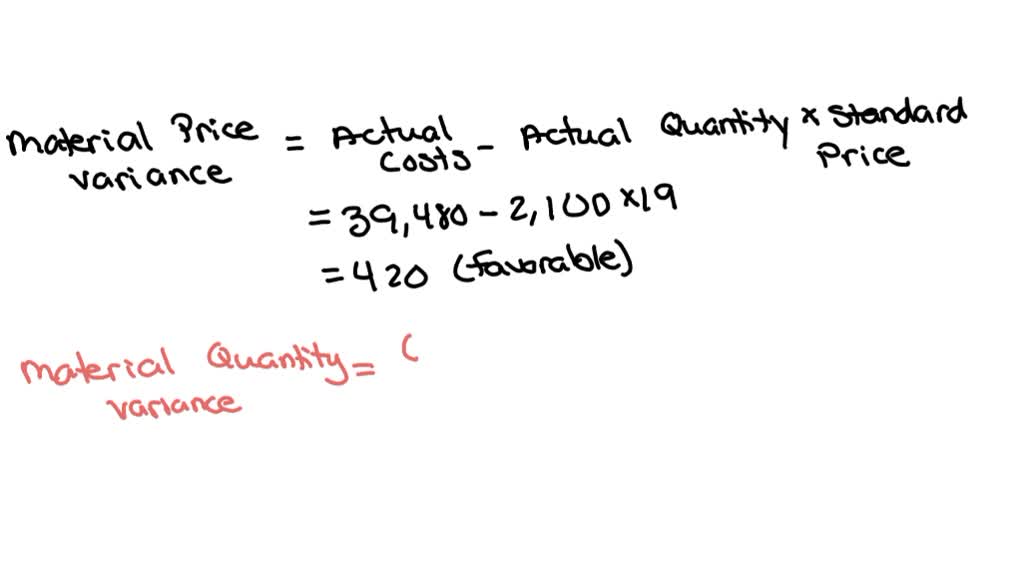 Material Price variance = Actual Costs - Actual Quantity × Standard Price
= 39,480 - 2,100 × 19
= 420 (favorable)
Material Quantity variance = (